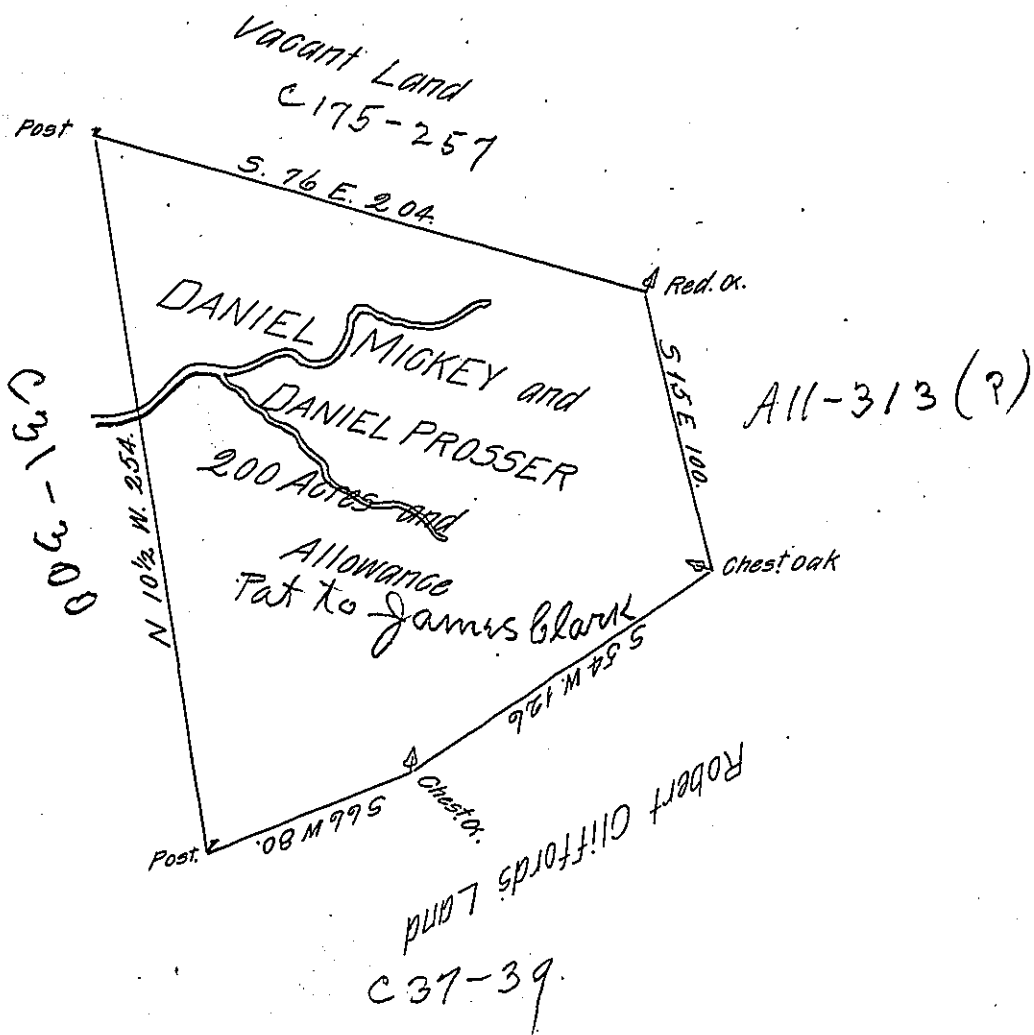 Vacant Land
C175-257
Post
S. 76 E. 204.
Red. o.
DANIEL MICKEY and
DANIEL PROSSER
200 Acres and
Allowance
Pat to James Clark
S 15 E 100.
A11-313 (?)
N 10½ W. 254.
Chest oak
S 54 W. 126
Chest o.
S 66 W 80.
Post.
Robert Cliffords Land
C37-39.